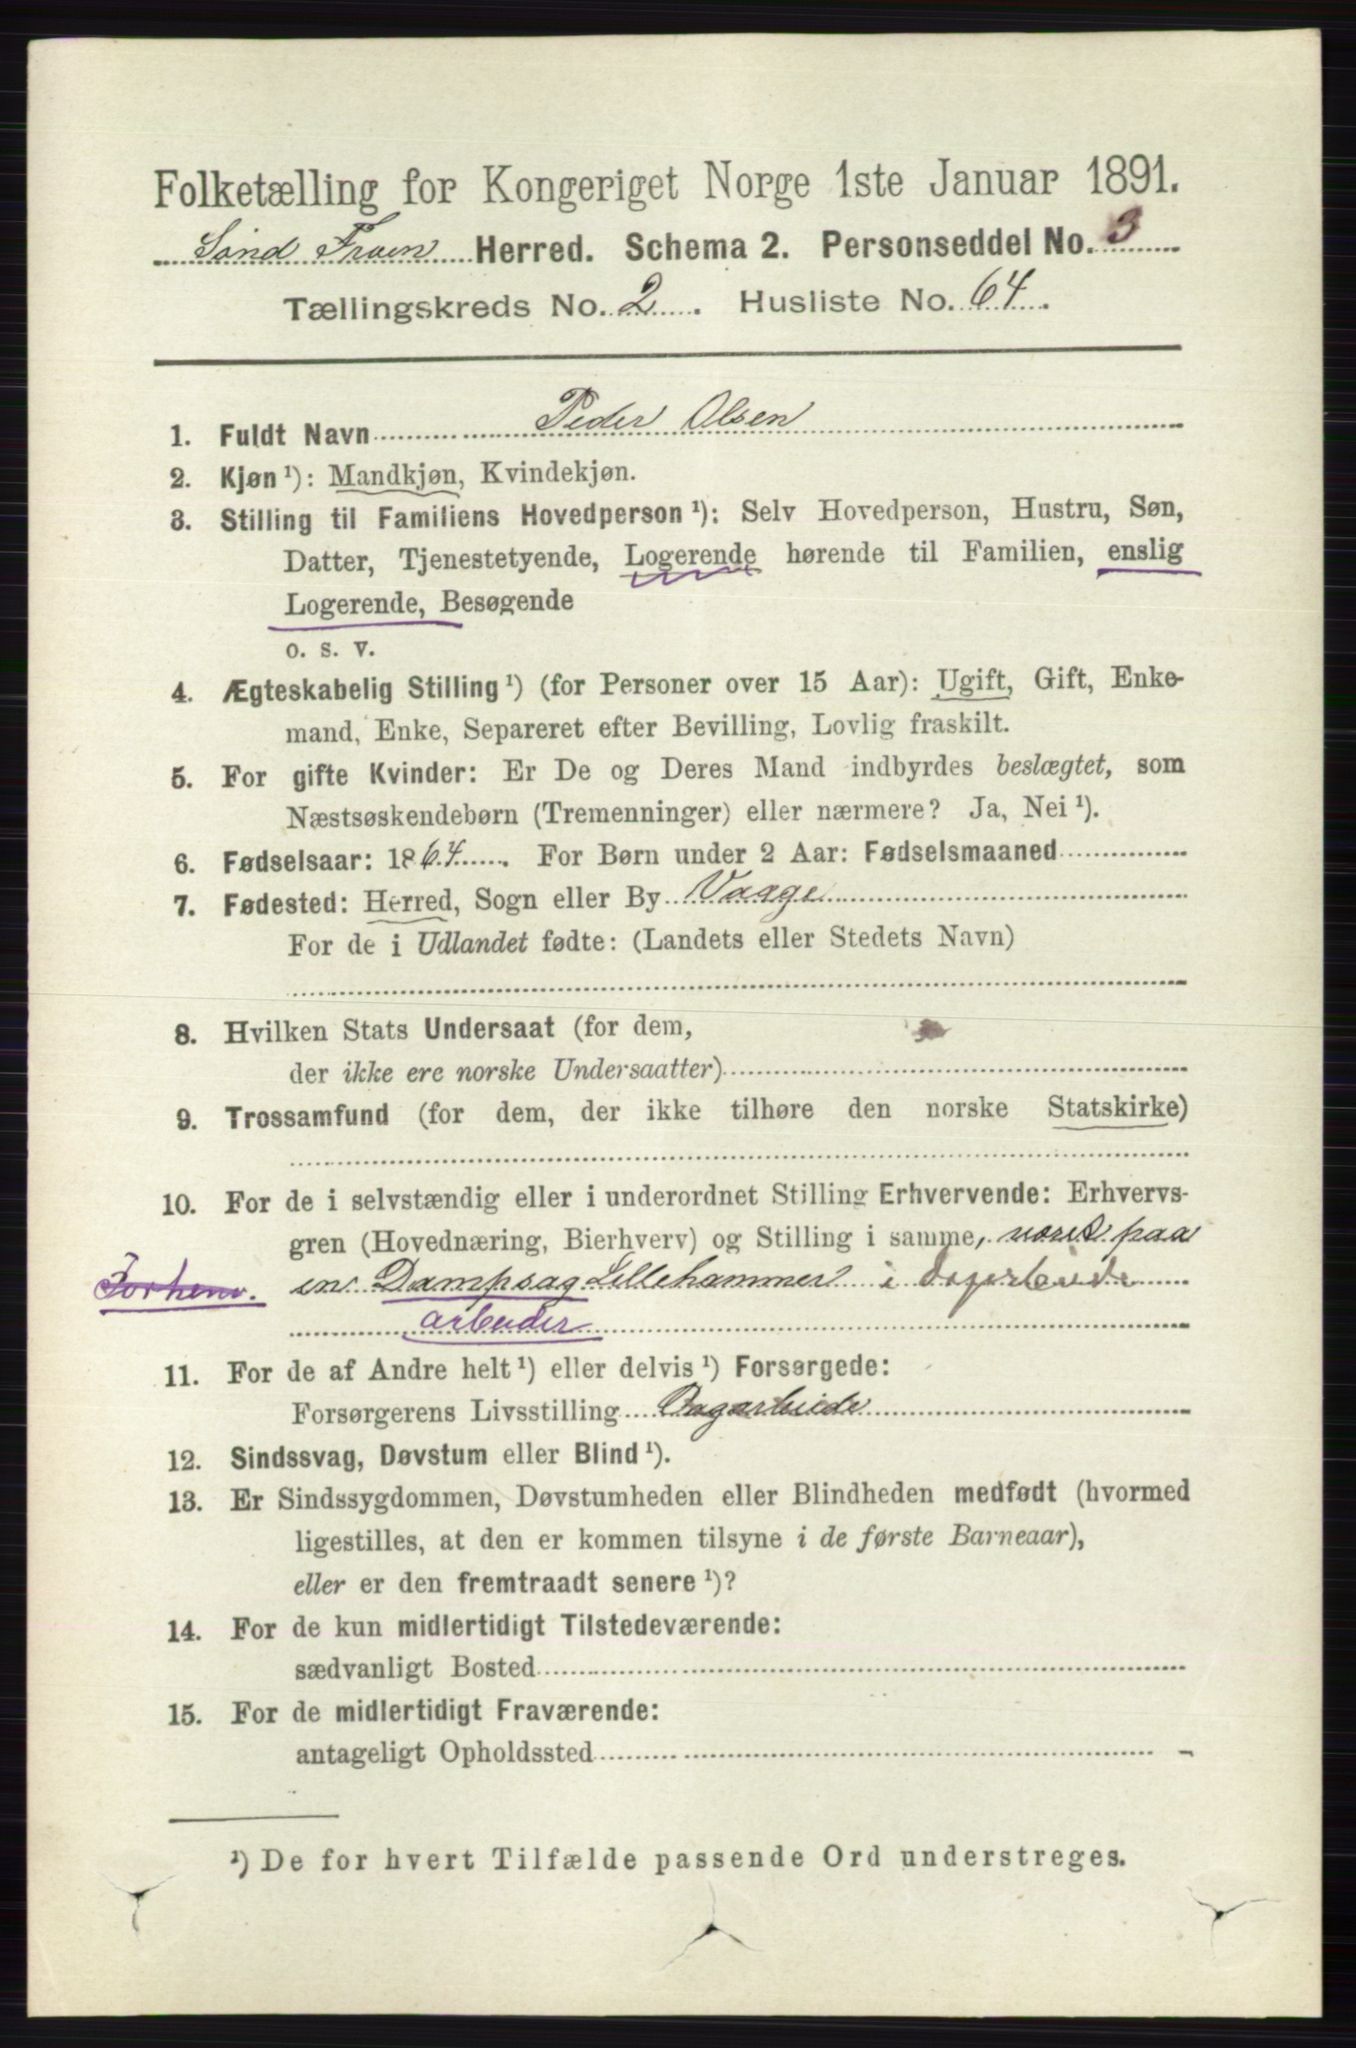 Folketælling for Kongeriget Norge 1ste Januar 1891.
Sønd Froen Herred. Schema 2. Personseddel No. 3
Tællingskreds No. 2. Husliste No. 64.
1. Fuldt Navn Peder Olsen
2. Kjøn ¹): Mandkjøn, Kvindekjøn.
3. Stilling til Familiens Hovedperson ¹): Selv Hovedperson, Hustru, Søn,
Datter, Tjenestetyende, Logerende hørende til Familien, enslig
Logerende, Besøgende
o. s. v.
4. Ægteskabelig Stilling ¹) (for Personer over 15 Aar): Ugift, Gift, Enke-
mand, Enke, Separeret efter Bevilling, Lovlig fraskilt.
5. For gifte Kvinder: Er De og Deres Mand indbyrdes beslægtet, som
Næstsøskendebørn (Tremenninger) eller nærmere? Ja, Nei ¹).
6. Fødselsaar: 1864. For Børn under 2 Aar: Fødselsmaaned
7. Fødested: Herred, Sogn eller By Vaage
For de i Udlandet fødte: (Landets eller Stedets Navn)
8. Hvilken Stats Undersaat (for dem,
der ikke ere norske Undersaatter)
9. Trossamfund (for dem, der ikke tilhøre den norske Statskirke)
10. For de i selvstændig eller i underordnet Stilling Erhvervende: Erhvervs-
gren (Hovednæring, Bierhverv) og Stilling i samme, været paa
Forhenv. en Dampsag Lillehammer i dagarbeide
arbeider
11. For de af Andre helt ¹) eller delvis ¹) Forsørgede:
Forsørgerens Livsstilling Dagarbeide
12. Sindssvag, Døvstum eller Blind ¹).
13. Er Sindssygdommen, Døvstumheden eller Blindheden medfødt (hvormed
ligestilles, at den er kommen tilsyne i de første Barneaar),
eller er den fremtraadt senere ¹)?
14. For de kun midlertidigt Tilstedeværende:
sædvanligt Bosted
15. For de midlertidigt Fraværende:
antageligt Opholdssted
¹) De for hvert Tilfælde passende Ord understreges.